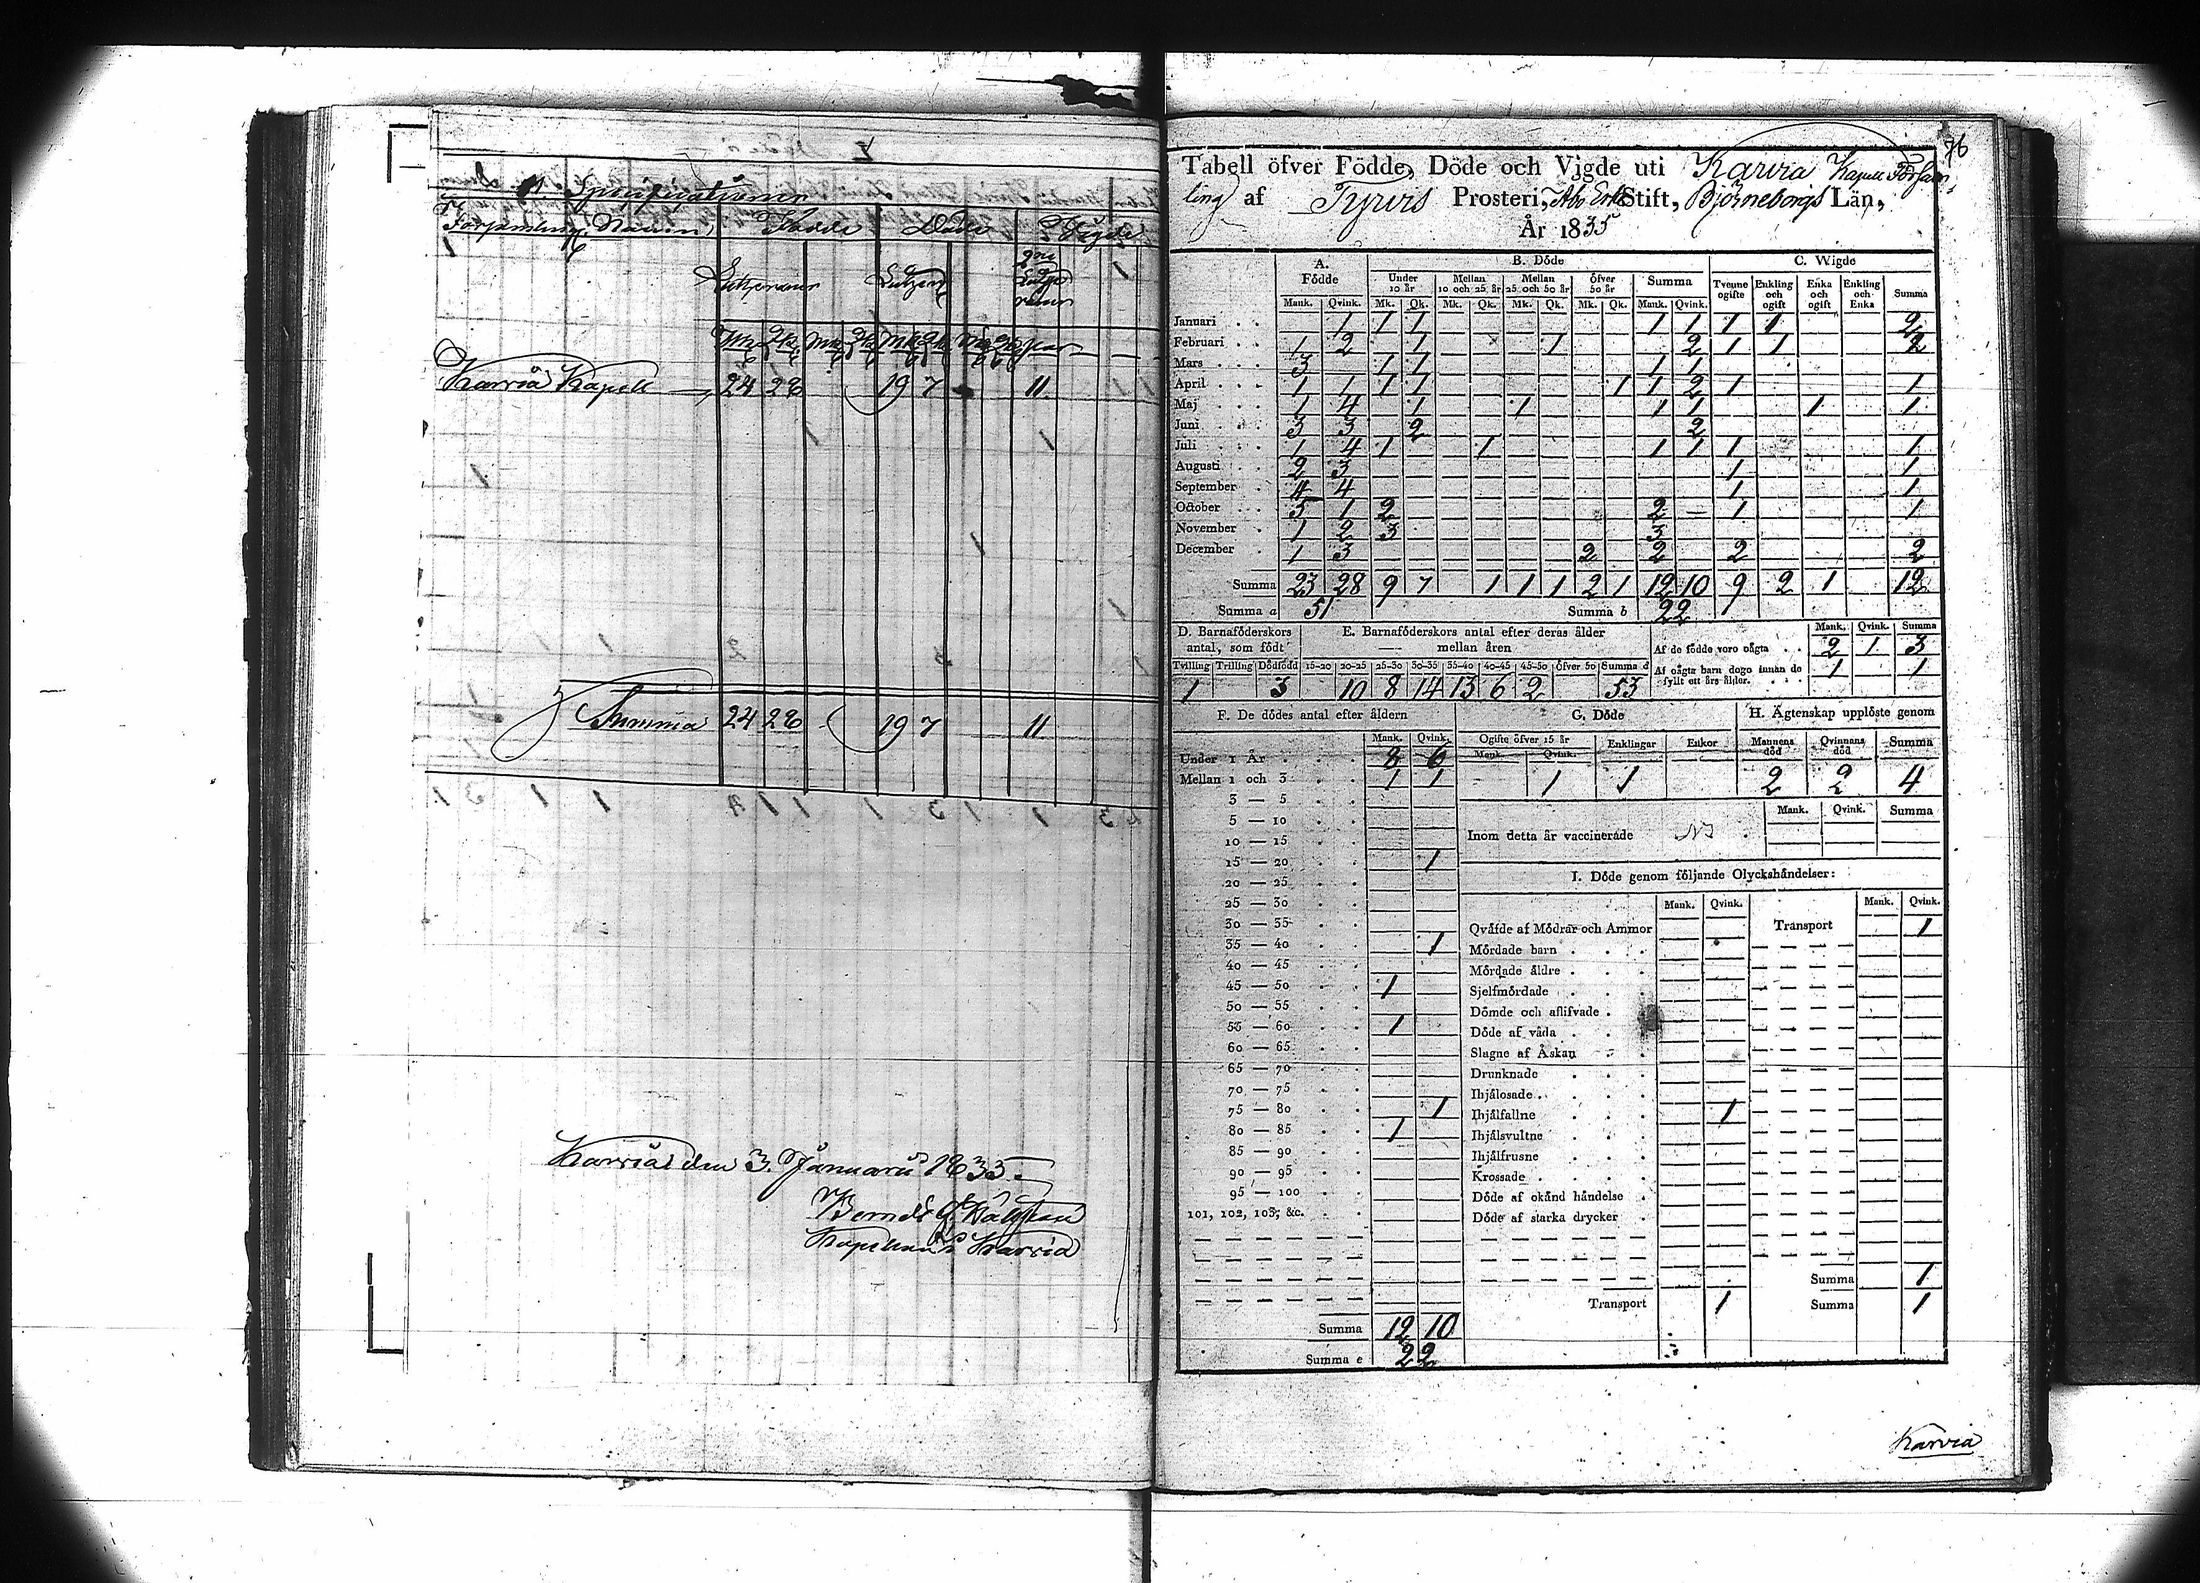 Specificationer
Församlings Namn, Födde Döde Vigde
Lutheraner
Mk Qk Mk Qk Mk Qk Mk Qk par
Karvia Kapell 24 28 19 7 11
Summa 24 28 19 7 11
Karvia den 3 Januarii 1835.
Kapellan i Karvia
76
Tabell öfver Födde, Döde och Vigde uti Karvia Kapell Försam-
ling af Tyrvis Prosteri, Åbo Erke Stift, Björneborgs Län,
År 1835
A. Födde B. Döde C. Wigde
Under 10 år Mellan 10 och 25 år Mellan 25 och 50 år öfver 50 år Summa Tvenne ogifte Enkling och ogift Enka och ogift Enkling och Enka Summa
Mank. Qvink. Mk. Qk. Mk. Qk. Mk. Qk. Mk. Qk. Mank. Qvink.
Januari . . 1 1 1 1 1 1 1 2
Februari . . 1 2 1 1 2 1 1 2
Mars . . . 3 1 1 1 1
April . . . 1 1 1 1 1 1 2 1 1
Maj . . . 1 4 1 1 1 1 1 1
Juni . . . 3 3 2 2
Juli . . . 1 4 1 1 1 1 1 1
Augusti . . 2 3 1 1
September . 4 4 1 1
October . . . 5 1 2 2 — 1 1
November . 1 2 3 3
December . 1 3 2 2 2 2
Summa 23 28 9 7 1 1 1 2 1 12 10 9 2 1 12
Summa a 51 Summa b 22
D. Barnaföderskors antal, som födt
Tvilling Trilling Dödfödd
1 3
E. Barnaföderskors antal efter deras ålder mellan åren
15–20 20–25 25–30 30–35 35–40 40–45 45–50 öfver 50 Summa d
10 8 14 13 6 2 53
Mank. Qvink. Summa
Af de födde voro oägta . . 2 1 3
Af oägta barn dogo innan de fyllt ett års ålder. . . . 1 1
F. De dödes antal efter åldern
Mank. Qvink.
Under 1 År . . . 8 6
Mellan 1 och 3 . . 1 1
3 — 5 . .
5 — 10 . .
10 — 15 . .
15 — 20 . . 1
20 — 25 . .
25 — 30 . .
30 — 35 . .
35 — 40 . . 1
40 — 45 . .
45 — 50 . . 1
50 — 55 . .
55 — 60 . . 1
60 — 65 . .
65 — 70 . .
70 — 75 . .
75 — 80 . . 1
80 — 85 . . 1
85 — 90 . .
90 — 95 . .
95 — 100 . .
101, 102, 103, &c. . .
Summa 12 10
Summa e 22
G. Döde
Ogifte öfver 15 år Enklingar Enkor
Mank. Qvink.
1 1
H. Ägtenskap upplöste genom
Mannens död Qvinnans död Summa
2 2 4
Mank. Qvink. Summa
Inom detta år vaccinerade
I. Döde genom följande Olyckshändelser:
Mank. Qvink. Mank. Qvink.
Qväfde af Mödrar och Ammor Transport 1
Mördade barn . . .
Mördade äldre . . .
Sjelfmördade . . .
Dömde och aflifvade .
Döde af våda . . .
Slagne af Åskan . .
Drunknade . . .
Ihjälosade . . . .
Ihjälfallne . . . 1
Ihjälsvultne . . .
Ihjälfrusne . . .
Krossade . . . .
Döde af okänd händelse .
Döde af starka drycker .
Summa 1
Transport 1 Summa 1
Karvia